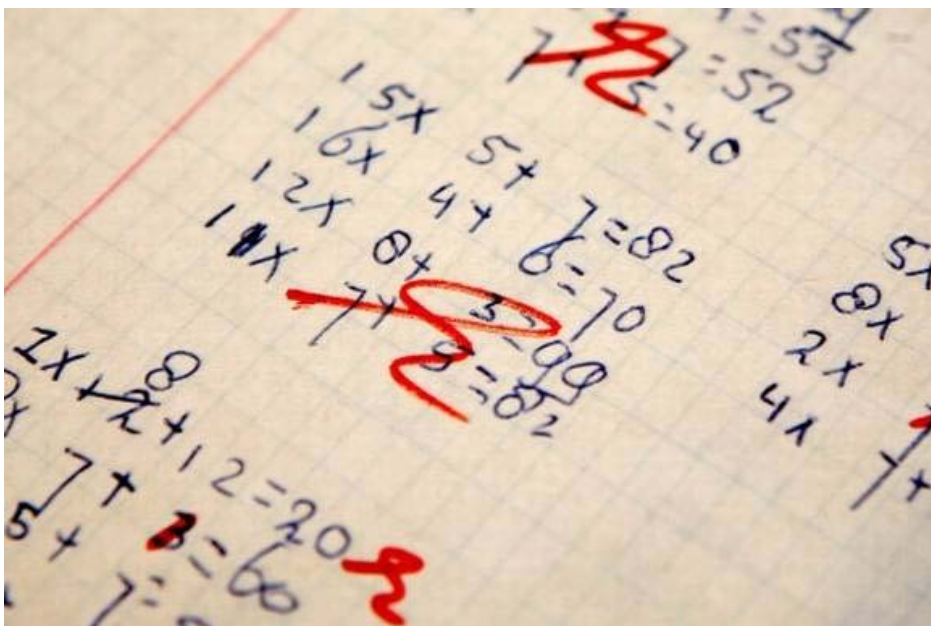 =53
7=52
7+ 5=40
15x 5+ 7=82
16x 4+ 6=70
12x 8+ 3=99
7+ 5=82
5x
8x
2x
4x 7+
1x 8+12=20
7+ 3=60
5+ 7=